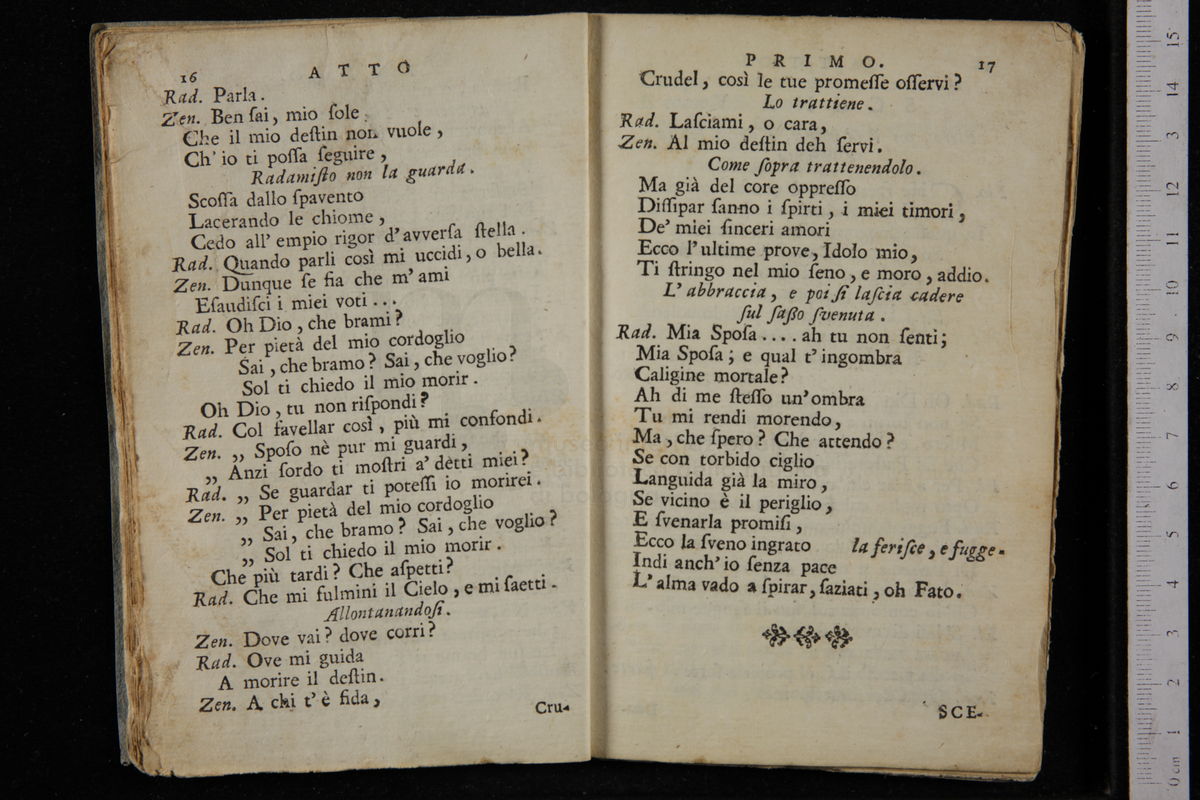 16
ATTO
Rad. Parla.
Zen. Ben ſai, mio ſole
Che il mio deſtin non vuole,
Ch' io ti poſſa ſeguire,
Radamiſto non la guarda.
Scoſſa dallo ſpavento
Lacerando le chiome,
Cedo all' empio rigor d'avverſa ſtella.
Rad. Quando parli così mi uccidi, o bella.
Zen. Dunque ſe fia che m' ami
Eſaudiſci i miei voti ...
Rad. Oh Dio, che brami?
Zen. Per pietà del mio cordoglio
Sai, che bramo? Sai, che voglio?
Sol ti chiedo il mio morir.
Oh Dio, tu non riſpondi?
Rad. Col favellar così, più mi confondi.
Zen. ,, Spoſo nè pur mi guardi,
,, Anzi ſordo ti moſtri a' detti miei?
Rad. ,, Se guardar ti poteſſi io morirei.
Zen. ,, Per pietà del mio cordoglio
,, Sai, che bramo? Sai, che voglio?
,, Sol ti chiedo il mio morir.
Che più tardi? Che aſpetti?
Rad. Che mi fulmini il Cielo, e mi ſaetti.
Allontanandoſi.
Zen. Dove vai? dove corri?
Rad. Ove mi guida
A morire il deſtin.
Zen. A chi t' è fida,
Cru-
PRIMO.
17
Crudel, così le tue promeſſe oſſervi?
Lo trattiene.
Rad. Laſciami, o cara,
Zen. Al mio deſtin deh ſervi.
Come ſopra trattenendolo.
Ma già del core oppreſſo
Diſſipar ſanno i ſpirti, i miei timori,
De' miei ſinceri amori
Ecco l'ultime prove, Idolo mio,
Ti ſtringo nel mio ſeno, e moro, addio.
L' abbraccia, e poi ſi laſcia cadere
ſul ſaßo ſvenuta.
Rad. Mia Spoſa .... ah tu non ſenti;
Mia Spoſa; e qual t' ingombra
Caligine mortale?
Ah di me ſteſſo un' ombra
Tu mi rendi morendo,
Ma, che ſpero? Che attendo?
Se con torbido ciglio
Languida già la miro,
Se vicino è il periglio,
E ſvenarla promiſi,
Ecco la ſveno ingrato la feriſce, e fugge.
Indi anch' io ſenza pace
L' alma vado a ſpirar, ſaziati, oh Fato.
SCE-